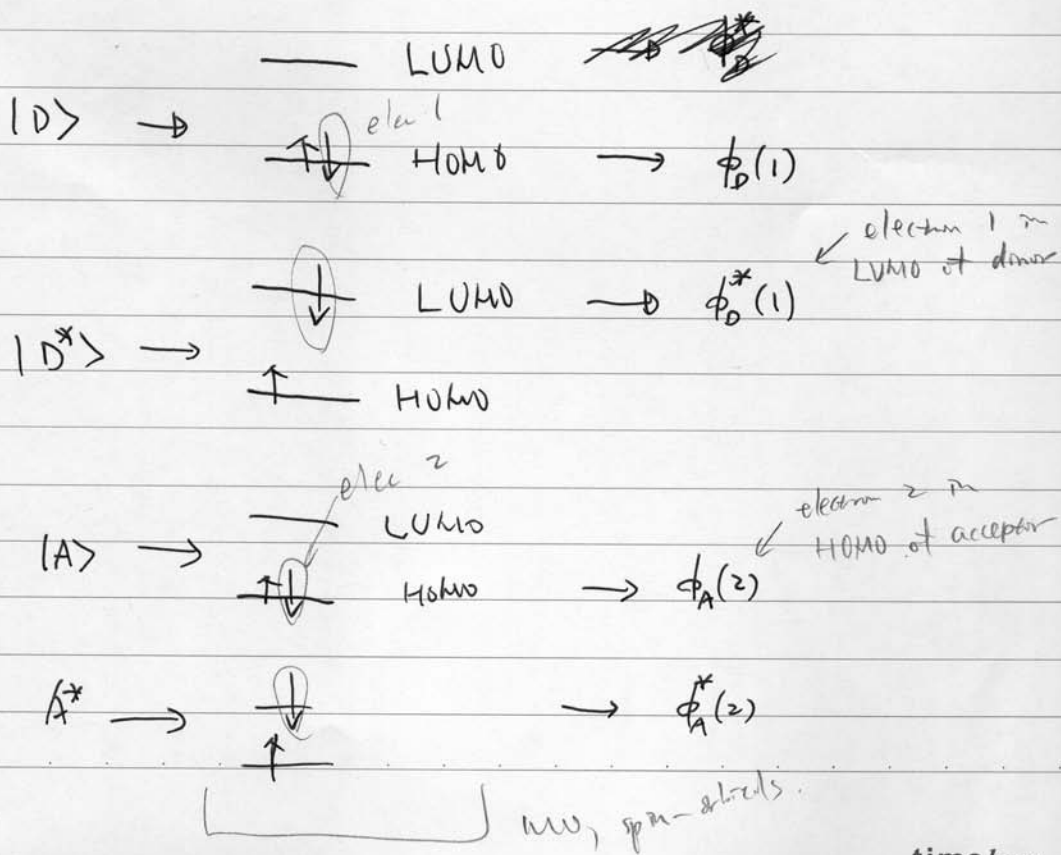 LUMO
|D> → elec 1
HOMO → ϕ_D(1)
electron 1 in
LUMO of donor
LUMO → ϕ_D^*(1)
|D*> →
HOMO
elec 2
LUMO
electron 2 in
HOMO of acceptor
|A> →
HOMO → ϕ_A(2)
A* → → ϕ_A^*(2)
MO, spin-orbitals.